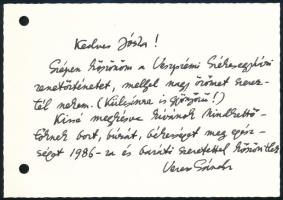 Kedves Jóska!
Szépen köszönöm a Veszprémi Székesegyház
zenetörténetet, mellyel nagy örömet szerez-
tél nekem. (Külsőre is gyönyörű!)
Kissé megkésve kívánok Mindkettő-
töknek bort, búzát, békességet meg egész-
séget 1986-ra és baráti szeretettel köszöntlek
Veress Sándor